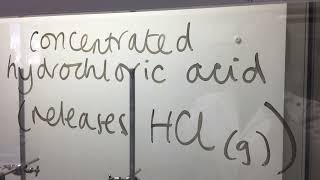 concentrated
hydrochloric acid
(releases HCl (g))